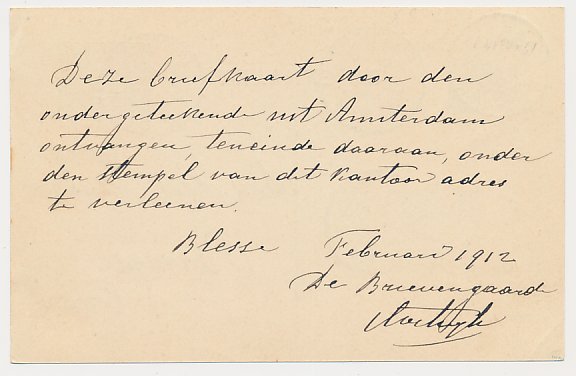 Deze briefkaart door den
ondergeteekende uit Amsterdam
ontvangen, teneinde daaraan, onder
den stempel van dit kantoor adres
te verleenen.
Blesse Februari 1912
De Brievengaarder